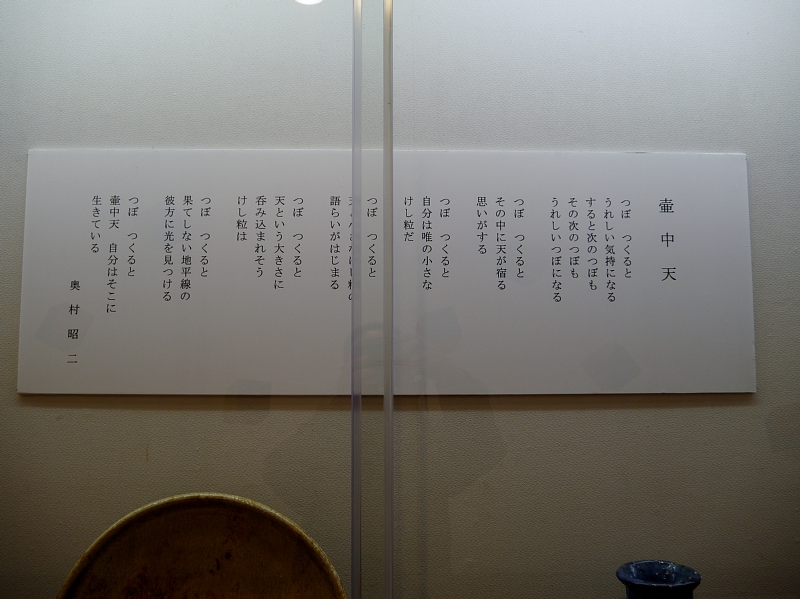 壷中天
つぼ つくると
うれしい気持になる
すると次のつぼも
その次のつぼも
うれしいつぼになる
つぼ つくると
その中に天が宿る
思いがする
つぼ つくると
自分は唯の小さな
けし粒だ
つぼ つくると
語らいがはじまる
つぼ つくると
天という大きさに
呑み込まれそう
けし粒は
つぼ つくると
果てしない地平線の
彼方に光を見つける
つぼ つくると
壷中天 自分はそこに
生きている
奥村昭二